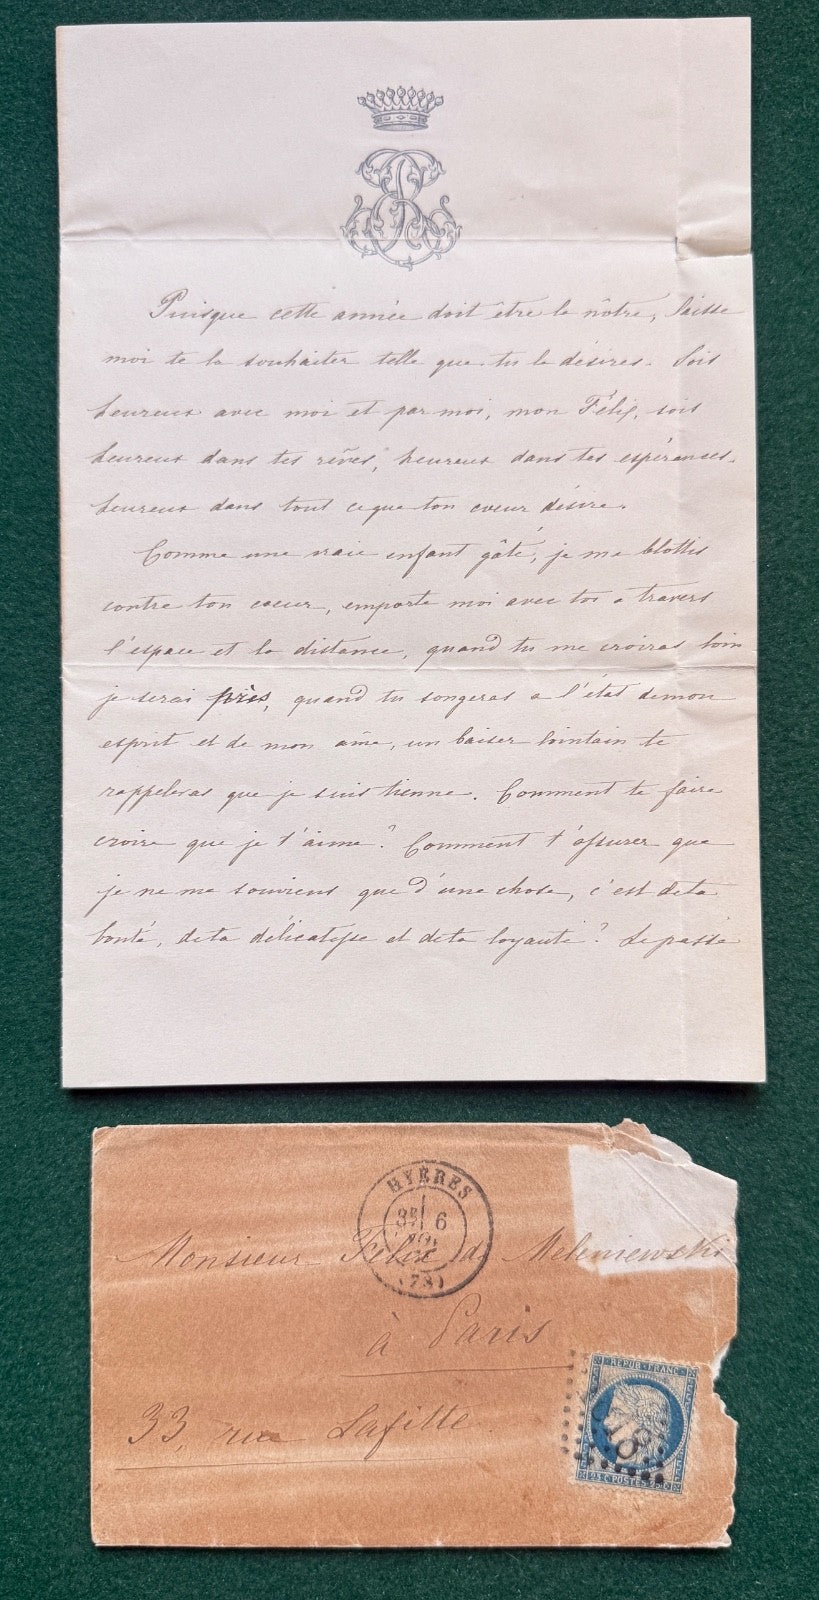 Puisque cette année doit être la nôtre, laisse
moi te la souhaiter telle que tu la désires. Sois
heureux avec moi et par moi, mon Félix, sois
heureux dans tes rêves, heureux dans tes espérances,
heureux dans tout ce que ton coeur désire.
Comme une vraie enfant gâté, je me blottis
contre ton coeur, emporte moi avec toi a travers
l'espace et la distance, quand tu me croiras loin
je serai près, quand tu songeras a l'état de mon
esprit et de mon âme, un baiser lointain te
rappeleras que je suis tienne. Comment te faire
croire que je t'aime? Comment t'assurer que
je ne me souviens que d'une chose, c'est de ta
bonté, de ta délicatesse et de ta loyauté? Le passé
HYÈRES
6
Monsieur Félix de Meleniewski
à Paris
33, rue Lafitte
REPUB·FRANC
25 c POSTES 25 c